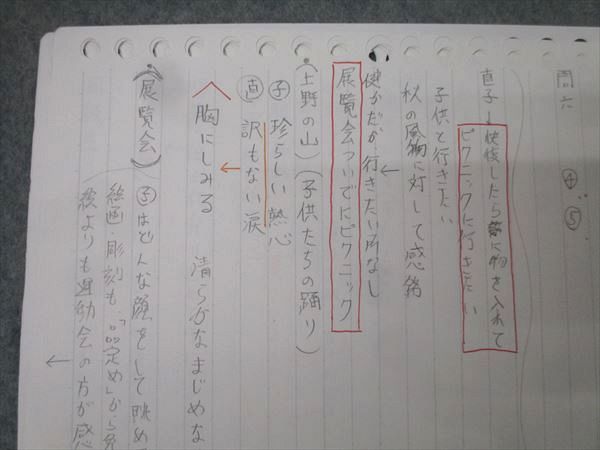 問六 ④ ⑤
直子 快復したら籠に物を入れて
ピクニックに行きたい
子供と行きたい
秋の風物に対して感銘
健かだが行きたい所なし
展覧会ついでにピクニック
(上野の山)(子供たちの踊り)
子 珍らしい熱心
直 訳もない涙
胸にしみる 清らかなまじめな
(展覧会) 子はどんな顔をして眺め
絵画・彫刻も「品定め」から
絵よりも運動会の方が感